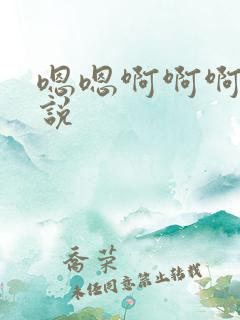 嗯嗯啊啊啊
說
喬菜
未经同意禁止转载